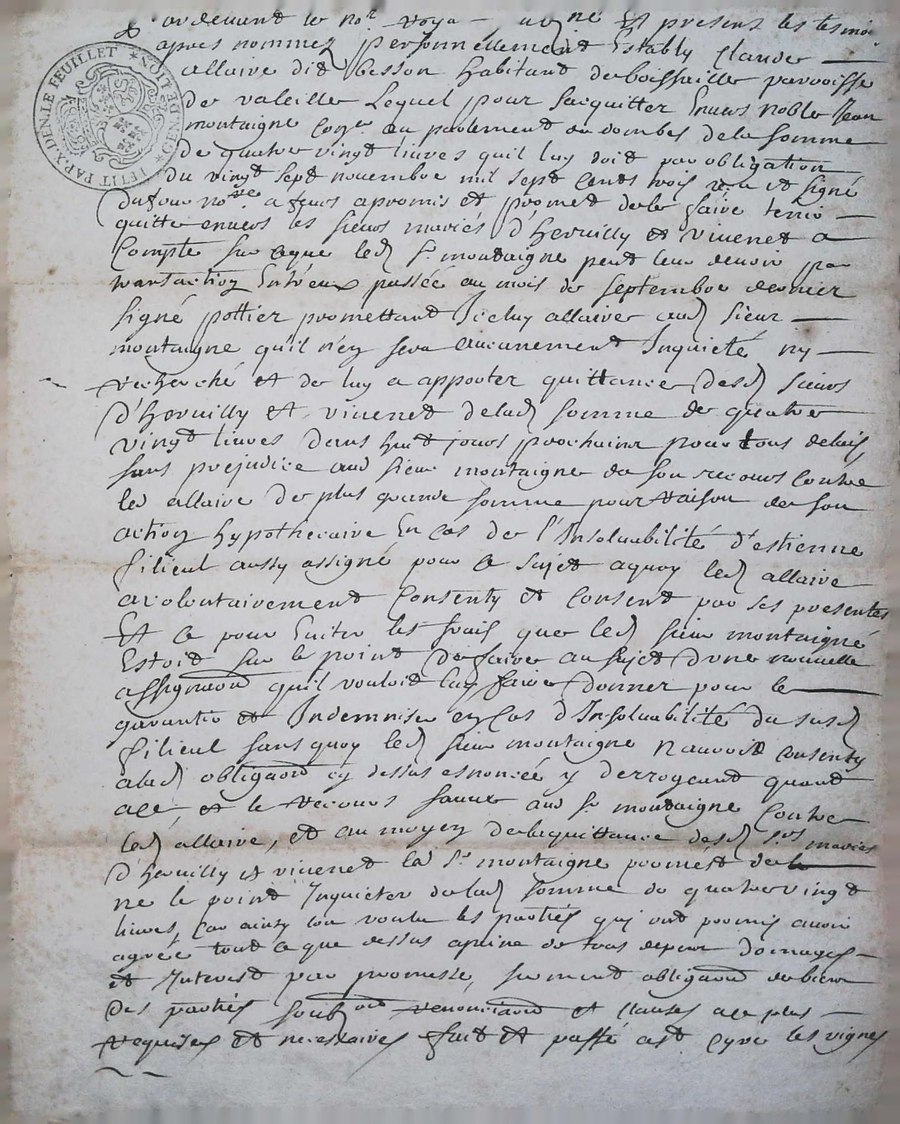 GN. DE LION * PETIT PAP. X DEN. LE FEUILLET *
pardevant le no.re royal et présent les tesmoins
apres nommez personnellement Estably Claude
allaire dit besson habitant de boissailler parroisse
de valeille Lequel pour saquitter Envers noble Jean
montaigne con.er au parlement de dombes de la somme
de quatre vingt livres quil luy doit par obligation
du vingt sept novembre mil sept Cents trois et signé
dufour no.re a promis et promet de le faire tenir
quitte envers les sieurs mariés d'Hervilly et vivenet a
Compte sur ceque led S.r montaigne peut leur devoir par
transaction Entreux passée au mois de septembre dernier
signé pottier promettant Iceluy allaire aud sieur
montaigne quil n'en sera aucunement Inquieté ny
recherché et de luy a apporter quittance desd sieurs
d'Hervilly et vivenet delad somme de quatre
vingt livres dans huit jours prochains pour tous delais
sans prejudice aud sieur montaigne de son recours Contre
led allaire de plus grande somme pour raison de son
action hypothecaire En cas de l'Insoluabilité d'estienne
filieul aussy assigné pour ce sujet aquoy led allaire
a volontairement Consenty et consent par ses presentes
Et ce pour Eviter les frais que led sieur montaigne
Estoit sur le point de faire au sujet d'une nouvelle
assignaon quil vouloit luy faire donner pour le
garantir et Indemniser en cas d'Insoluabilité du susd
filieul sans quoy led sieur montaigne n'auroit consenty
alad obligaon cy dessus esnoncée y derrogeant quant
ace, et le recours sauve aud S.r montaigne Contre
led allaire, et au moyen de laquittance desd s.rs mariés
d'Hervilly et vivenet led S.r montaigne promet de
ne le point Inquieter delad somme de quatre vingt
livres, Car ainsy lon voulu les parties qui ont promis avoir
agréé tout ce que dessus apeine de tous depens domages
et Interest par promesse, serment obligaon de biens
des parties soub.on renonciaon et clauses ace plus
requises et necessaires fait et passé a st Cyre les vignes